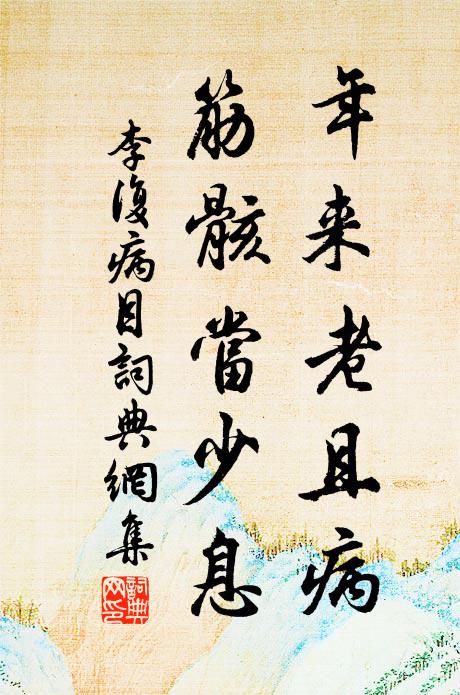 年来老且病
筋骸當少息
李復病目詞典網集
詞典网印